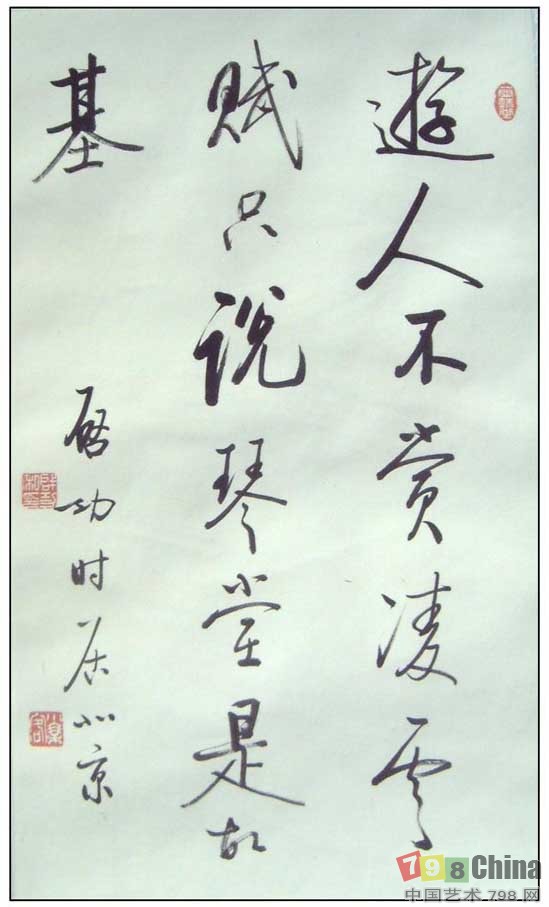 遊人不賞凌雲
賦只說琴堂是故
基
啟功时居北京
798China
中国艺术.798.网